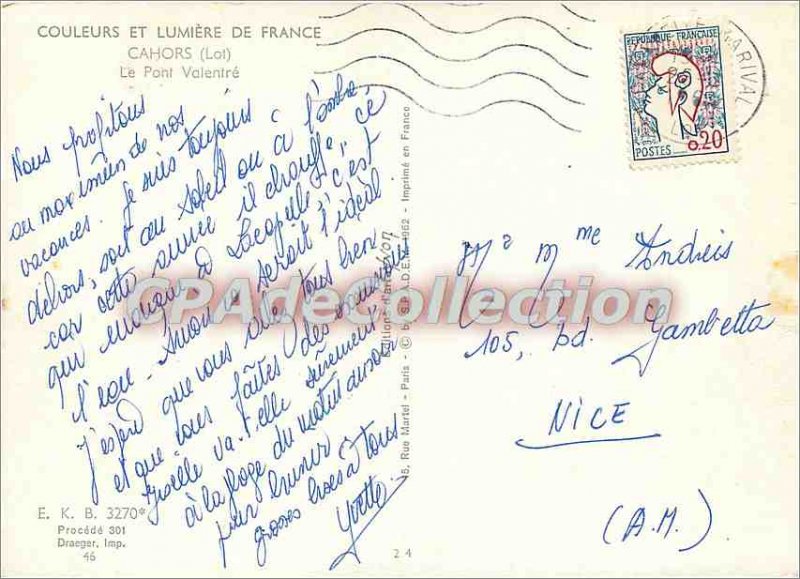 COULEURS ET LUMIÈRE DE FRANCE
CAHORS (Lot)
Le Pont Valentré
Nous profitons
au maximum de nos
vacances. Je suis toujours
dehors, soit au soleil ou à l'ombre
car cette année il chauffe, ce
qui manque à Lacapelle, c'est
l'eau. Sinon ce serait l'idéal
J'espère que vous allez tous bien
et que vous faîtes des
Giselle va-t-elle sûrement
à la plage du matin au soir
pour brunir
grosses bises à tous
Yvette
E. K. B. 3270*
Procédé 301
Draeger, Imp.
46
24
Éditions d'art Yvon
18, Rue Martel - Paris - © by S.P.A.D.E.M. 1962 - Imprimé en France
MARIVAL
RÉPUBLIQUE FRANÇAISE
POSTES 0,20
Mr Mme Andreis
105, bd. Gambetta
NICE
(A.M.)
CPAdeCollection